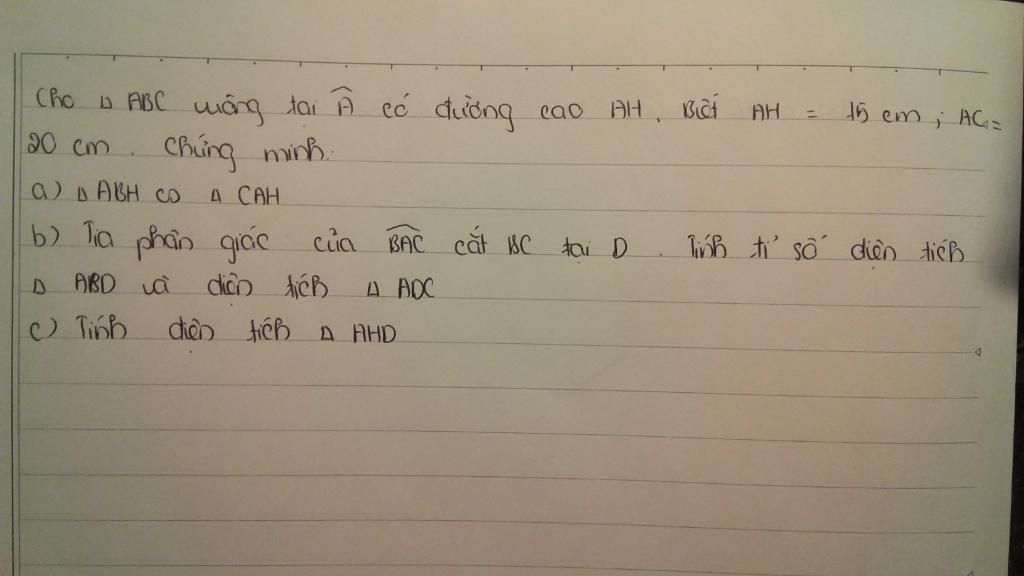 Cho △ ABC vuông tại Â có đường cao AH. Biết AH = 15 cm ; AC =
20 cm. Chứng minh:
a) △ ABH ∽ △ CAH
b) Tia phân giác của BAC cắt BC tại D. Tính tỉ số diện tích
△ ABD và diện tích △ ADC
c) Tính diện tích △ AHD